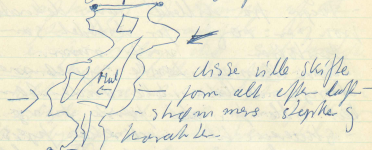 Hul
disse ville skifte
form alt efter luft-
strømmens styrke og
karakter.